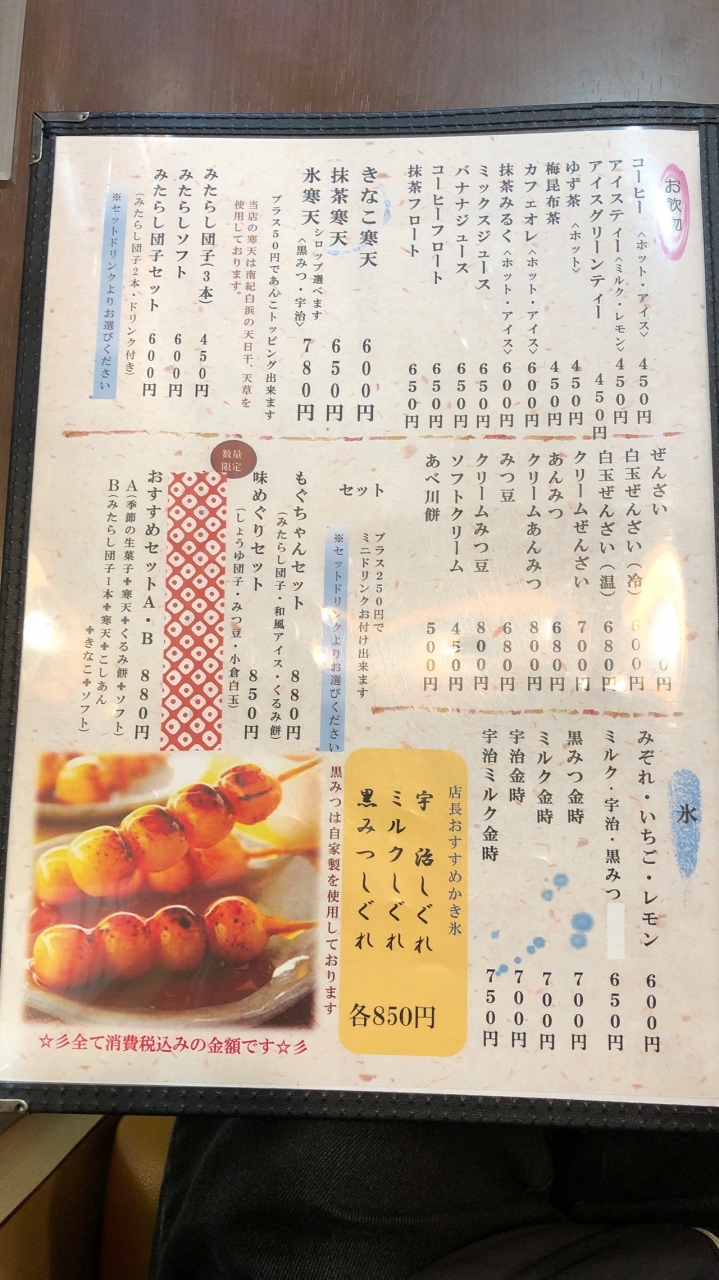 お飲物
コーヒー 〈ホット・アイス〉 450円
アイスティー〈ミルク・レモン〉 450円
アイスグリーンティー 450円
ゆず茶 〈ホット〉 450円
梅昆布茶 450円
カフェオレ〈ホット・アイス〉 600円
抹茶みるく〈ホット・アイス〉 600円
ミックスジュース 650円
バナナジュース 650円
コーヒーフロート 650円
抹茶フロート 650円
きなこ寒天 600円
抹茶寒天 650円
シロップ選べます
氷寒天〈黒みつ・宇治〉 780円
プラス50円であんこトッピング出来ます
当店の寒天は南紀白浜の天日干、天草を
使用しております。
みたらし団子(3本) 450円
みたらしソフト 600円
みたらし団子セット 600円
(みたらし団子2本・ドリンク付き)
※セットドリンクよりお選びください
ぜんざい 0円
白玉ぜんざい(冷) 600円
白玉ぜんざい(温) 680円
クリームぜんざい 700円
あんみつ 680円
クリームあんみつ 800円
みつ豆 680円
クリームみつ豆 800円
ソフトクリーム 450円
あべ川餅 500円
プラス250円で
ミニドリンクお付け出来ます
セット
※セットドリンクよりお選びください
もぐちゃんセット 880円
(みたらし団子・和風アイス・くるみ餅)
数量
限定
味めぐりセット 850円
(しょうゆ団子・みつ豆・小倉白玉)
おすすめセットA・B 880円
A(季節の生菓子+寒天+くるみ餅+ソフト)
B(みたらし団子1本+寒天+こしあん
+きなこ+ソフト)
氷
みぞれ・いちご・レモン 600円
ミルク・宇治・黒みつ 650円
黒みつ金時 700円
ミルク金時 700円
宇治金時 700円
宇治ミルク金時 750円
店長おすすめかき氷
宇治しぐれ
ミルクしぐれ
黒みつしぐれ
各850円
黒みつは自家製を使用しております
☆彡全て消費税込みの金額です☆彡